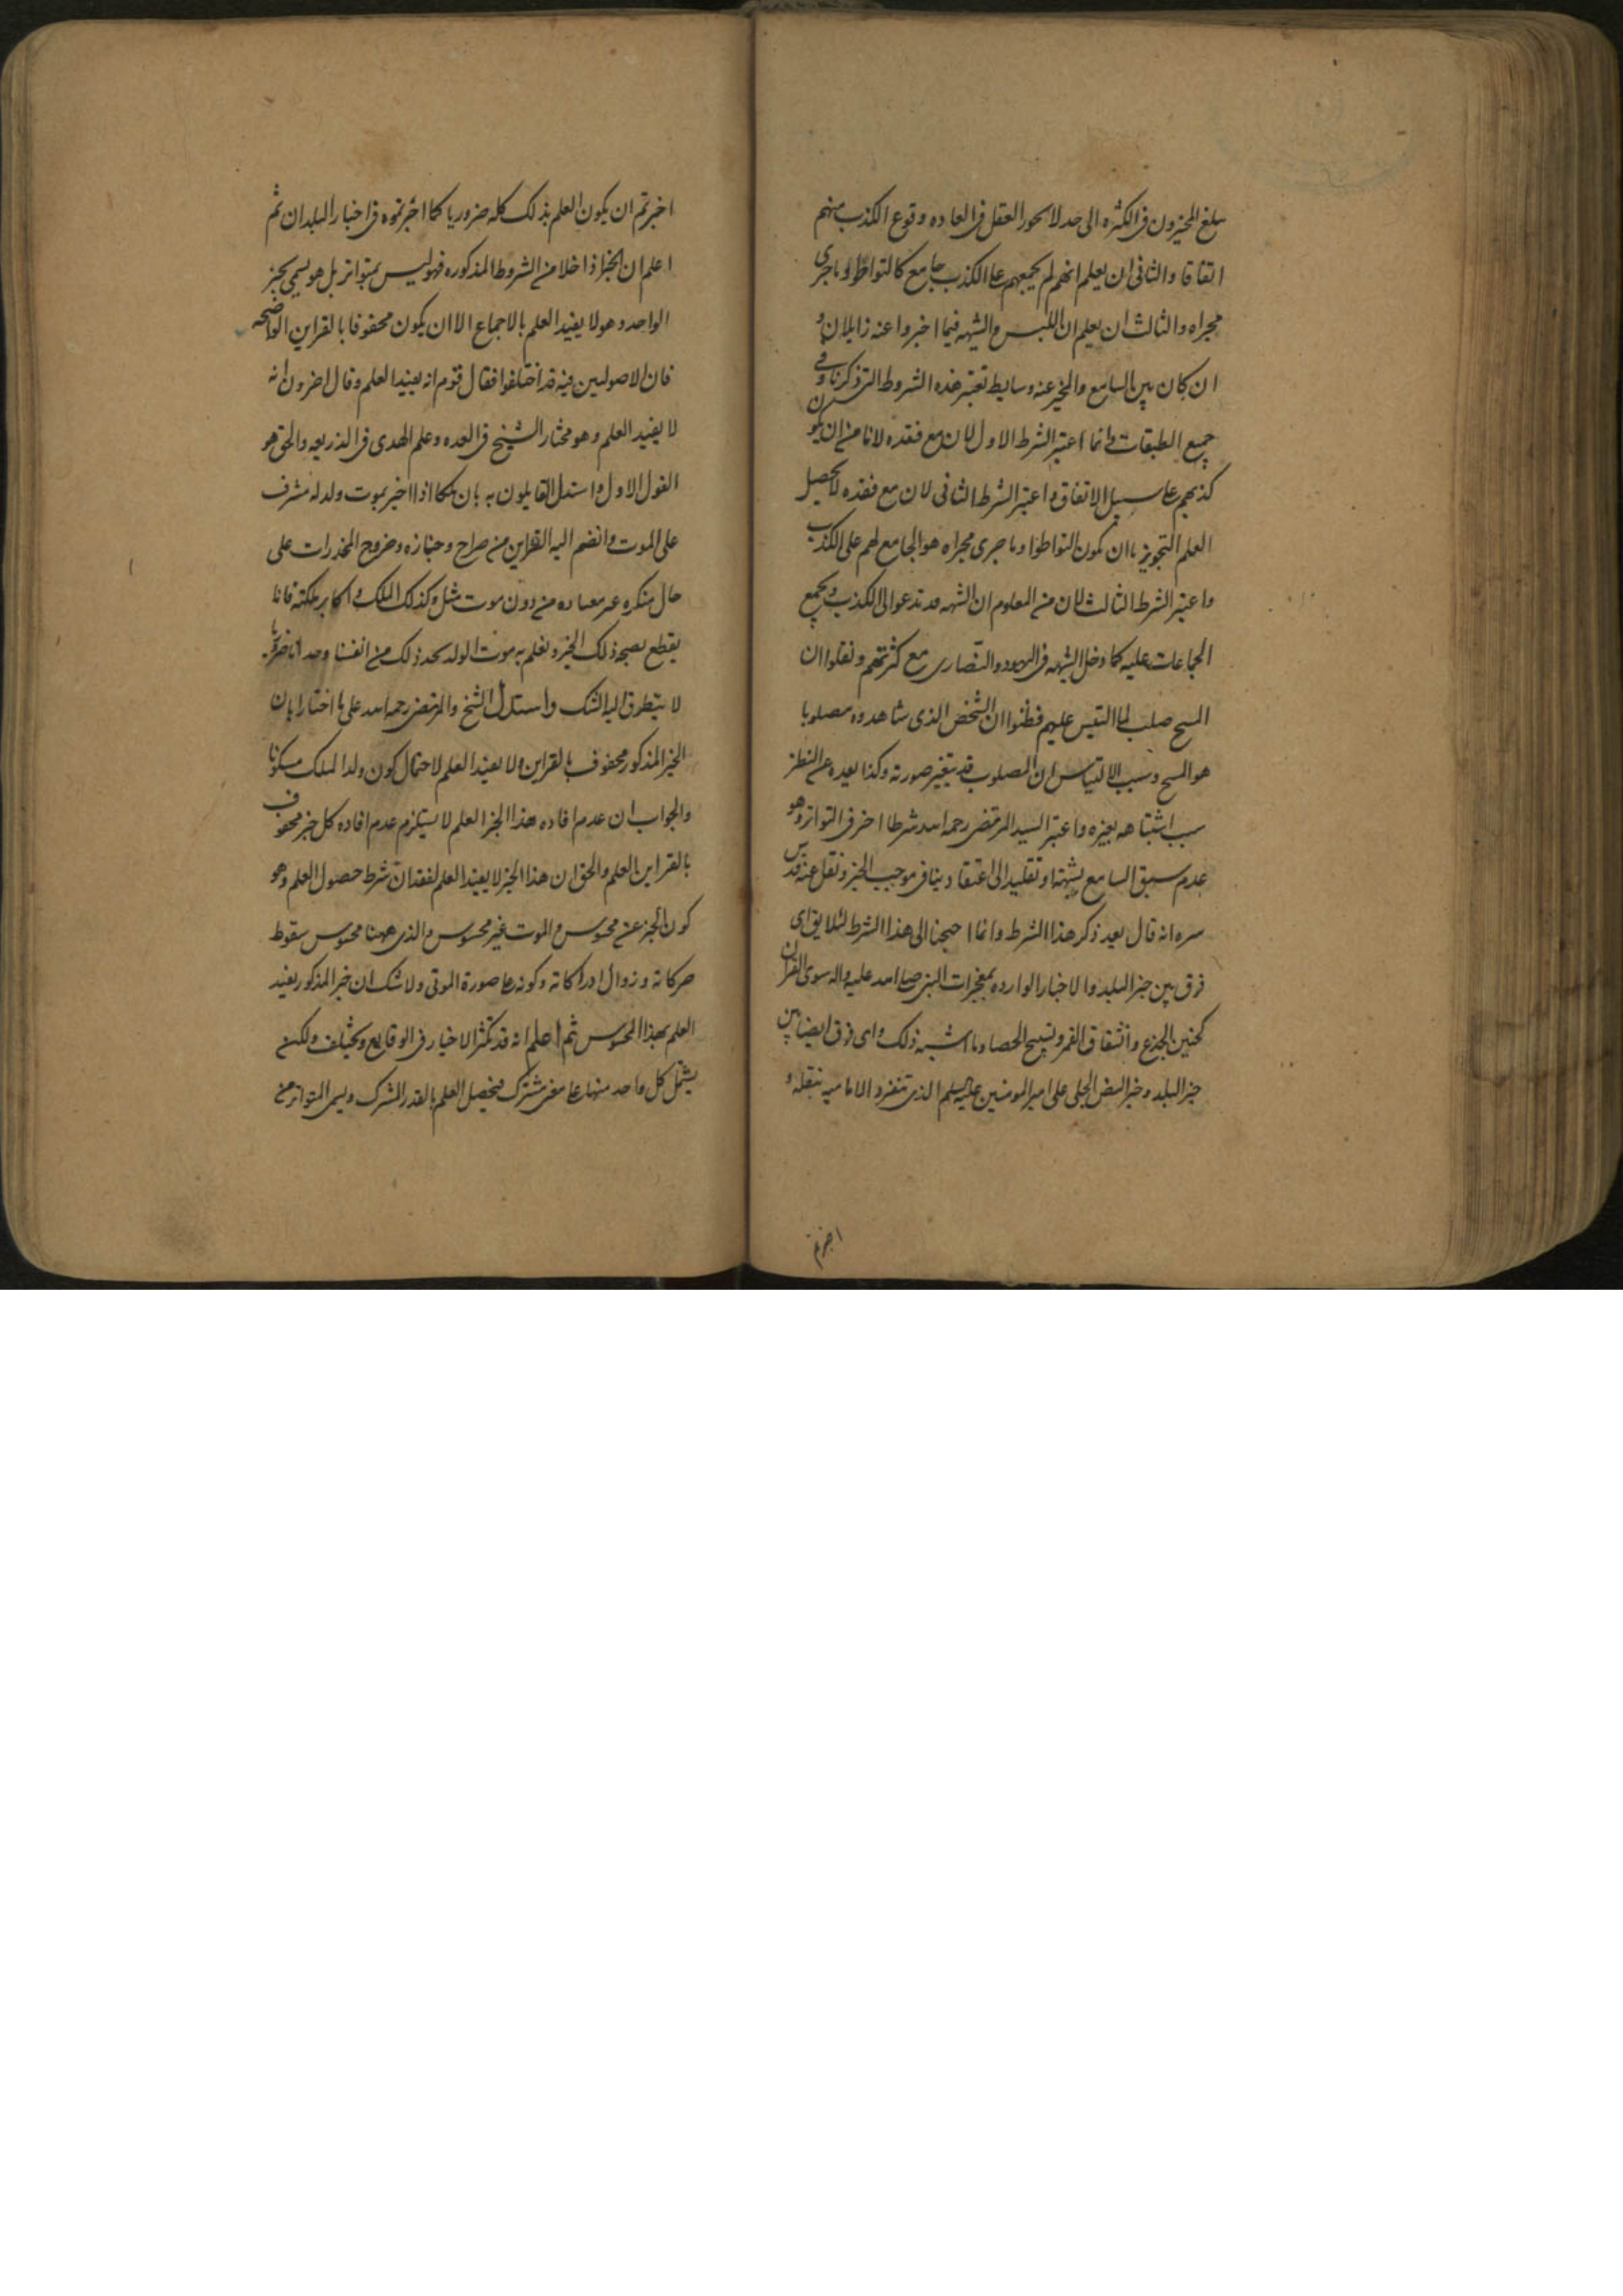 يبلغ المخبرون في الكثره الى حد لا يجوز العقل في العاده وقوع الكذب منهم
اتفاقا والثاني ان يعلم انهم لم يجمعهم على الكذب جامع كالتواطؤ او ما جرى
مجراه والثالث ان يعلم ان اللبس والشبهه فيما اخبروا عنه زايلان و
ان كان بين السامع والمخبر عنه وسايط تعتبر هذه الشروط التي ذكرنا في
جميع الطبقات وانما اعتبر الشرط الاول لان مع فقده لا نامن ان يكون
كذبهم على سبيل الاتفاق واعتبر الشرط الثاني لان مع فقده لا يحصل
العلم لتجويز ان يكون التواطؤ او ما جرى مجراه هو الجامع لهم على الكذب
واعتبر الشرط الثالث لان من المعلوم ان الشبهه قد تدعوا الى الكذب ويجمع
الجماعات عليه كما دخل الشبهه في اليهود والنصارى مع كثرتهم ونقلوا ان
المسيح صلب لما التبس عليهم فظنوا ان الشخص الذي شاهدوه مصلوبا
هو المسيح وسبب الالتباس ان المصلوب قد يتغير صورته وكذا بعده عن النظر
سبب اشتباهه بغيره واعتبر السيد المرتضى رحمه الله شرطا اخر في التواتر وهو
عدم سبق السامع بشبهة او تقليد الى اعتقاد ينافي موجب الخبر ونقل عنه قدس
سره انه قال بعد ذكر هذا الشرط وانما احتجنا الى هذا الشرط لئلا يق اي
فرق بين خبر البلد والاخبار الوارده بمعجزات النبي صلى الله عليه واله سوى القران
كحنين الجذع وانشقاق القمر وتسبيح الحصا وما اشبه ذلك واي فرق ايضا بين
خبر البلد وخبر النص الجلي على امير المومنين عليه السلم الذي تنفرد الاماميه بنقله و
اجزتم
اخبرتم ان يكون العلم بذلك كله ضروريا كما اجزتموه في اخبار البلدان ثم
اعلم ان الخبر اذا خلا من الشروط المذكوره فهو ليس بمتواتر بل هو يسمى بخبر
الواحد وهو لا يفيد العلم بالاجماع الا ان يكون محفوفا بالقراين الواضحه
فان الاصوليين فيه قد اختلفوا فقال قوم انه يفيد العلم وقال اخرون انه
لا يفيد العلم وهو مختار الشيخ في العده وعلم الهدى في الذريعه والحق هو
القول الاول واستدل القايلون به بان ملكا اذا اخبر بموت ولد له مشرف
على الموت وانضم اليه القراين من صراح وجنازه وخروج المخدرات على
حال منكره غير معتاده من دون موت مثله وكذلك الملك واكابر مملكته فانا
يقطع بصحه ذلك الخبر ونعلم به موت الولد نجد ذلك من انفسنا وجدانا ضروريا
لا يتطرق اليه الشك واستدل الشيخ والمرتضى رحمه الله على ما اختارا بان
الخبر المذكور محفوف بالقراين ولا يفيد العلم لاحتمال كون ولد الملك مسكوتا
والجواب ان عدم افاده هذا الخبر العلم لا يستلزم عدم افاده كل خبر محفوف
بالقراين العلم والحق ان هذا الخبر لا يفيد العلم لفقدان شرط حصول العلم وهو
كون الخبر عن محسوس والموت غير محسوس والذي ههنا محسوس سقوط
حركاته وزوال ادراكاته وكونه على صورة الموتى ولا شك ان خبر المذكور يفيد
العلم بهذا المحسوس ثم اعلم انه قد تكثر الاخبار في الوقايع ويختلف ولكن
يشتمل كل واحد منها على معنى مشترك فيحصل العلم بالقدر المشترك ويسمى المتواتر من